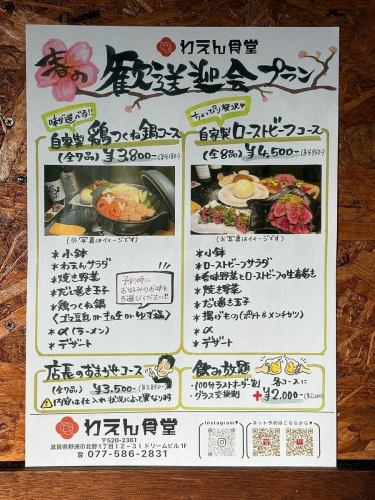 わえん食堂
春の
歓送迎会プラン
味が選べる!!
自家製 鶏つくね鍋コース
(全7品) ¥3,800-
(※写真はイメージです)
*小鉢
*わえんサラダ
*焼き野菜
*だし巻き玉子
*鶏つくね鍋
(ゴマ豆乳 or キムチ or ゆず塩)
*α(ラーメン)
*デザート
予約時に
お好みのお味を
お選びください!!
ちょっぴり贅沢♥
自家製 ローストビーフコース
(全8品) ¥4,500-
(※写真はイメージです)
*小鉢
*ローストビーフサラダ
*香味野菜とローストビーフの生春巻き
*焼き野菜
*だし巻き玉子
*揚げもの(ポテト&メンチカツ)
*α
*デザート
店長のおまかせコース
(全7品) ¥3,500-
内容は仕入れ状況によって異なります
飲み放題
・100分ラストオーダー制
・グラス交換制
各コースに
+¥2,000-
わえん食堂
〒520-2361
滋賀県野洲市北野1丁目12-31ドリームビル1F
077-586-2831
Instagram▼
ネット予約はこちらから▼